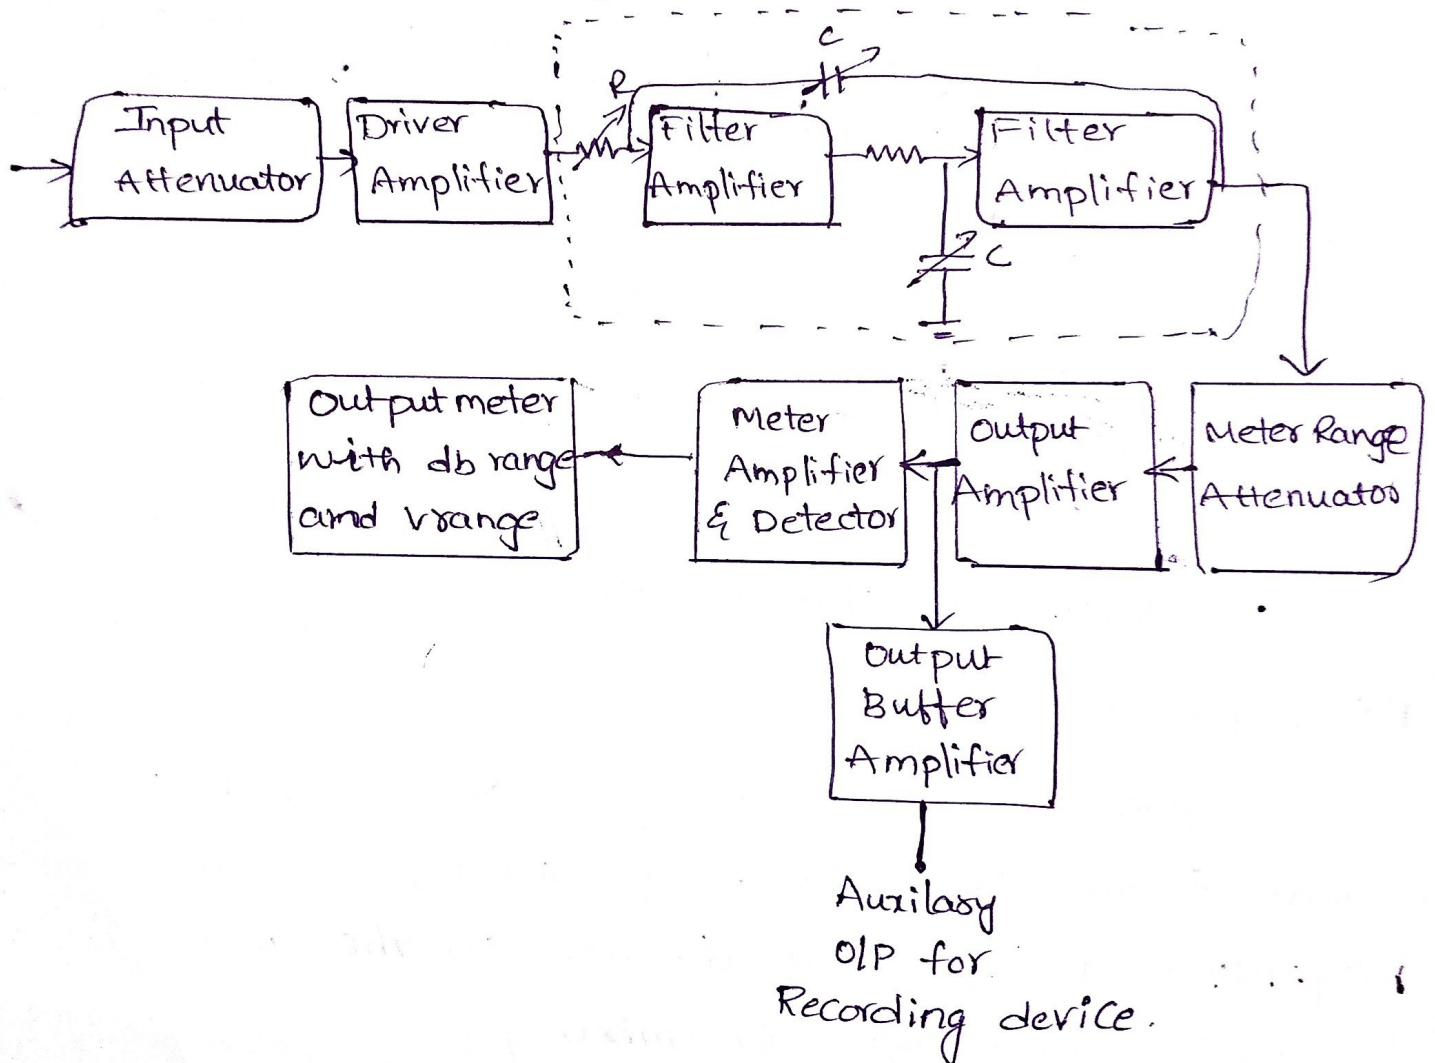 C
R
Input
Attenuator
Driver
Amplifier
Filter
Amplifier
Filter
Amplifier
C
Output meter
with db range
and vrange
Meter
Amplifier
& Detector
Output
Amplifier
Meter Range
Attenuator
Output
Buffer
Amplifier
Auxilary
O/P for
Recording device.